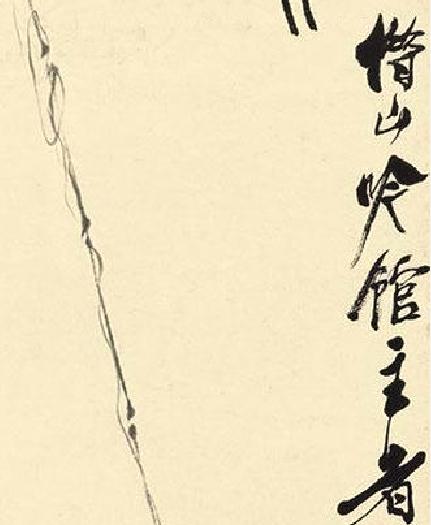 借山吟馆主者